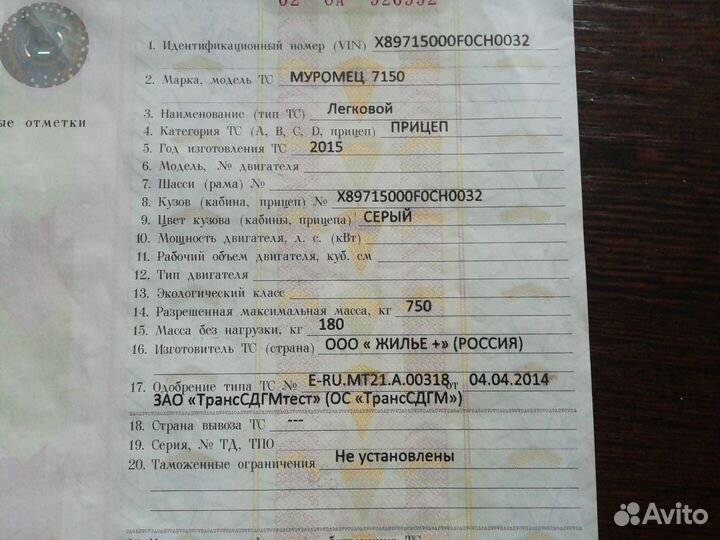 1. Идентификационный номер (VIN) X89715000F0CH0032
2. Марка, модель ТС МУРОМЕЦ 7150
3. Наименование (тип ТС) Легковой
ые отметки
4. Категория ТС (A, B, C, D, прицеп) ПРИЦЕП
5. Год изготовления ТС 2015
6. Модель, № двигателя
7. Шасси (рама) №
8. Кузов (кабина, прицеп) № X89715000F0CH0032
9. Цвет кузова (кабины, прицепа) СЕРЫЙ
10. Мощность двигателя, л. с. (кВт)
11. Рабочий объем двигателя, куб. см
12. Тип двигателя
13. Экологический класс
14. Разрешенная максимальная масса, кг 750
15. Масса без нагрузки, кг 180
16. Изготовитель ТС (страна) ООО « ЖИЛЬЕ +» (РОССИЯ)
17. Одобрение типа ТС № E-RU.MT21.A.00318 от 04.04.2014
ЗАО «ТрансСДГМтест» (ОС «ТрансСДГМ»)
18. Страна вывоза ТС ---
19. Серия, № ТД, ТПО
20. Таможенные ограничения Не установлены
Avito